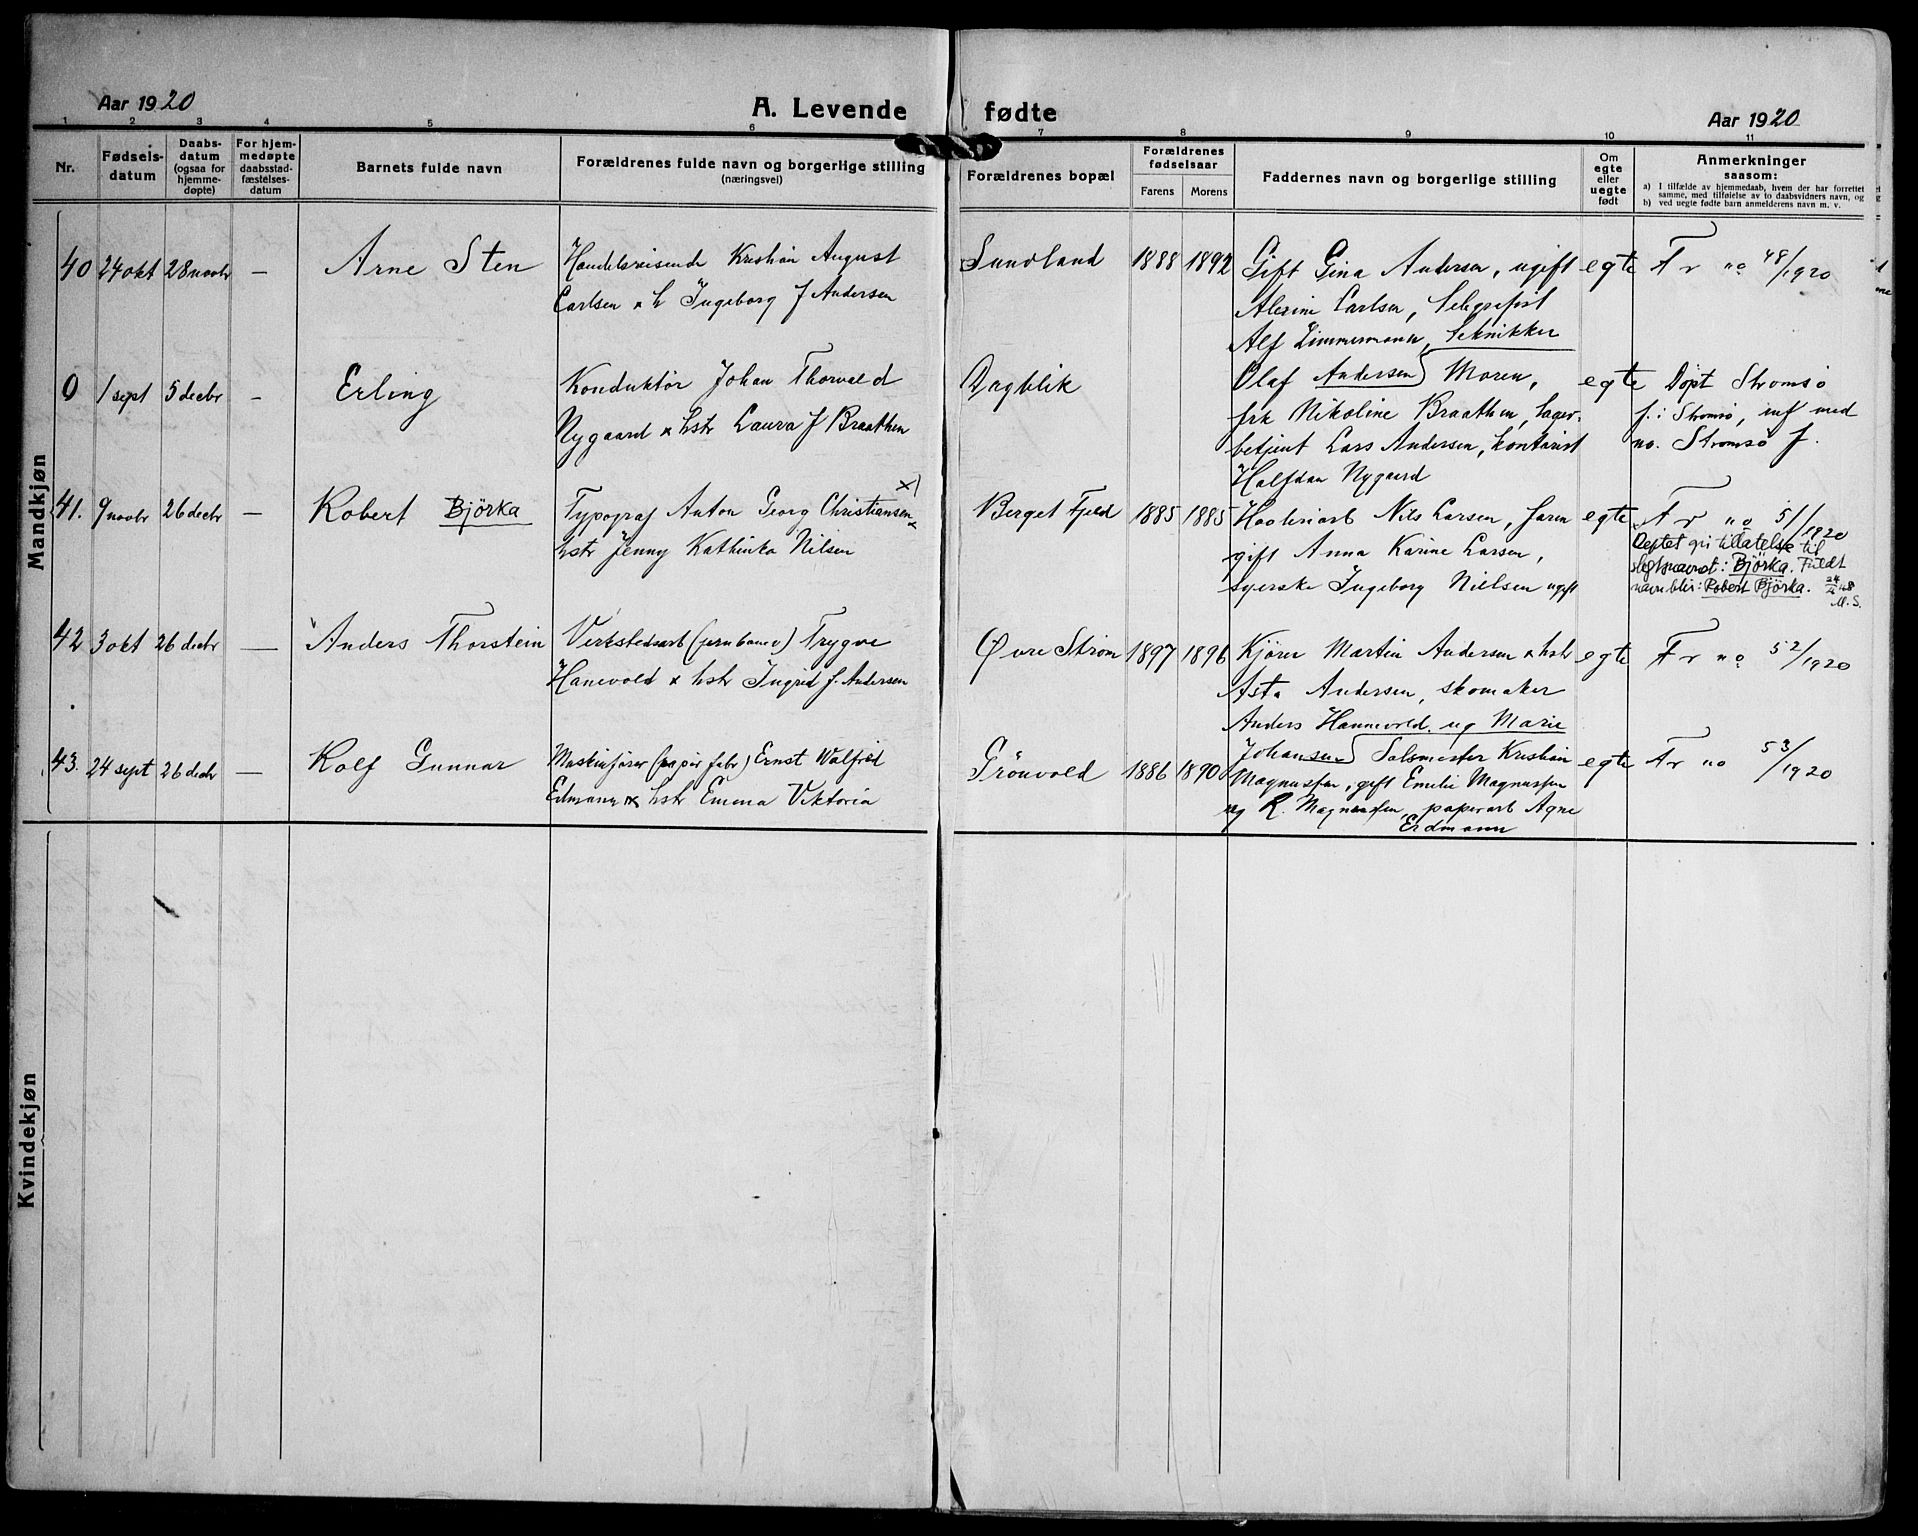 Aar 1920
A. Levende fødte
Aar 1920
1 2 3 4 5 6 7 8 9 10 11
Nr.
Fødsels-
datum
Daabs-
datum
(ogsaa for
hjemme-
døpte)
For hjem-
medøpte
daabsstad-
fæstelses-
datum
Barnets fulde navn
Forældrenes fulde navn og borgerlige stilling
(næringsvei)
Forældrenes bopæl
Forældrenes
fødselsaar
Farens Morens
Faddernes navn og borgerlige stilling
Om
egte
eller
uegte
født
Anmerkninger
saasom:
a) I tilfælde av hjemmedaab, hvem der har forrettet
samme, med tilføielse av to daabsvidners navn, og
b) ved uegte fødte barn anmelderens navn m. v.
Mandkjøn
40 24 okt 28 novbr —
Arne Sten
Handelsreisende Kristian August
Carlsen & h Ingeborg f Andersen
Sundland
1888 1892
Gift Gina Andersen, ugift
Alexine Carlsen, Telegrafist
Alf Zimmermann, Tekniker
Olaf Andersen
egte
F r no 48/1920
0 1 sept 5 decbr -
Erling
Konduktör Johan Thorvald
Nygaard & hstr Laura f Braathen
Dagblik
Moren,
frk Nikoline Braathen, Lager-
betjent Lars Andersen, kontorist
Halfdan Nygaard
egte
Døpt Strømsø
f. i Strømsø, inf med
no. Strømsø f.
41. 9 novbr 26 decbr —
Robert Björka
Typograf Anton Georg Christiansen x) &
hstr Jenny Kathinka Nilsen
Berget Fjeld
1885 1885
Nils Larsen,
gift Anna Karine Larsen,
syerske Ingeborg Nielsen ugift
egte
F r no 51/1920
tillatelse til
slegtsnavnet: Björka. Fuldt
navn blir: Robert Björka.
M.S.
42 3 okt 26 decbr —
Anders Thorstein
Verkstedsarb (jernbanen) Trygve
Hanevold & hstr Ingrid f. Andersen
Øvre Strøm
1897 1896
Kjører Martin Andersen & hstr
Asta Andersen, skomaker
Anders Hannevold, ug Marie
Johansen
egte
F r no 52/1920
43. 24 sept 26 decbr —
Rolf Gunnar
Maskinfører (papir fabr) Ernst Walfrid
Erdmann & hstr Emma Viktoria
Grönvold
1886 1890
Salsmester Kristian
Magnussen, gift Emilie Magnussen
ug R. Magnussen, papirarb Agne
Erdmann
egte
F r no 53/1920
Kvindekjøn